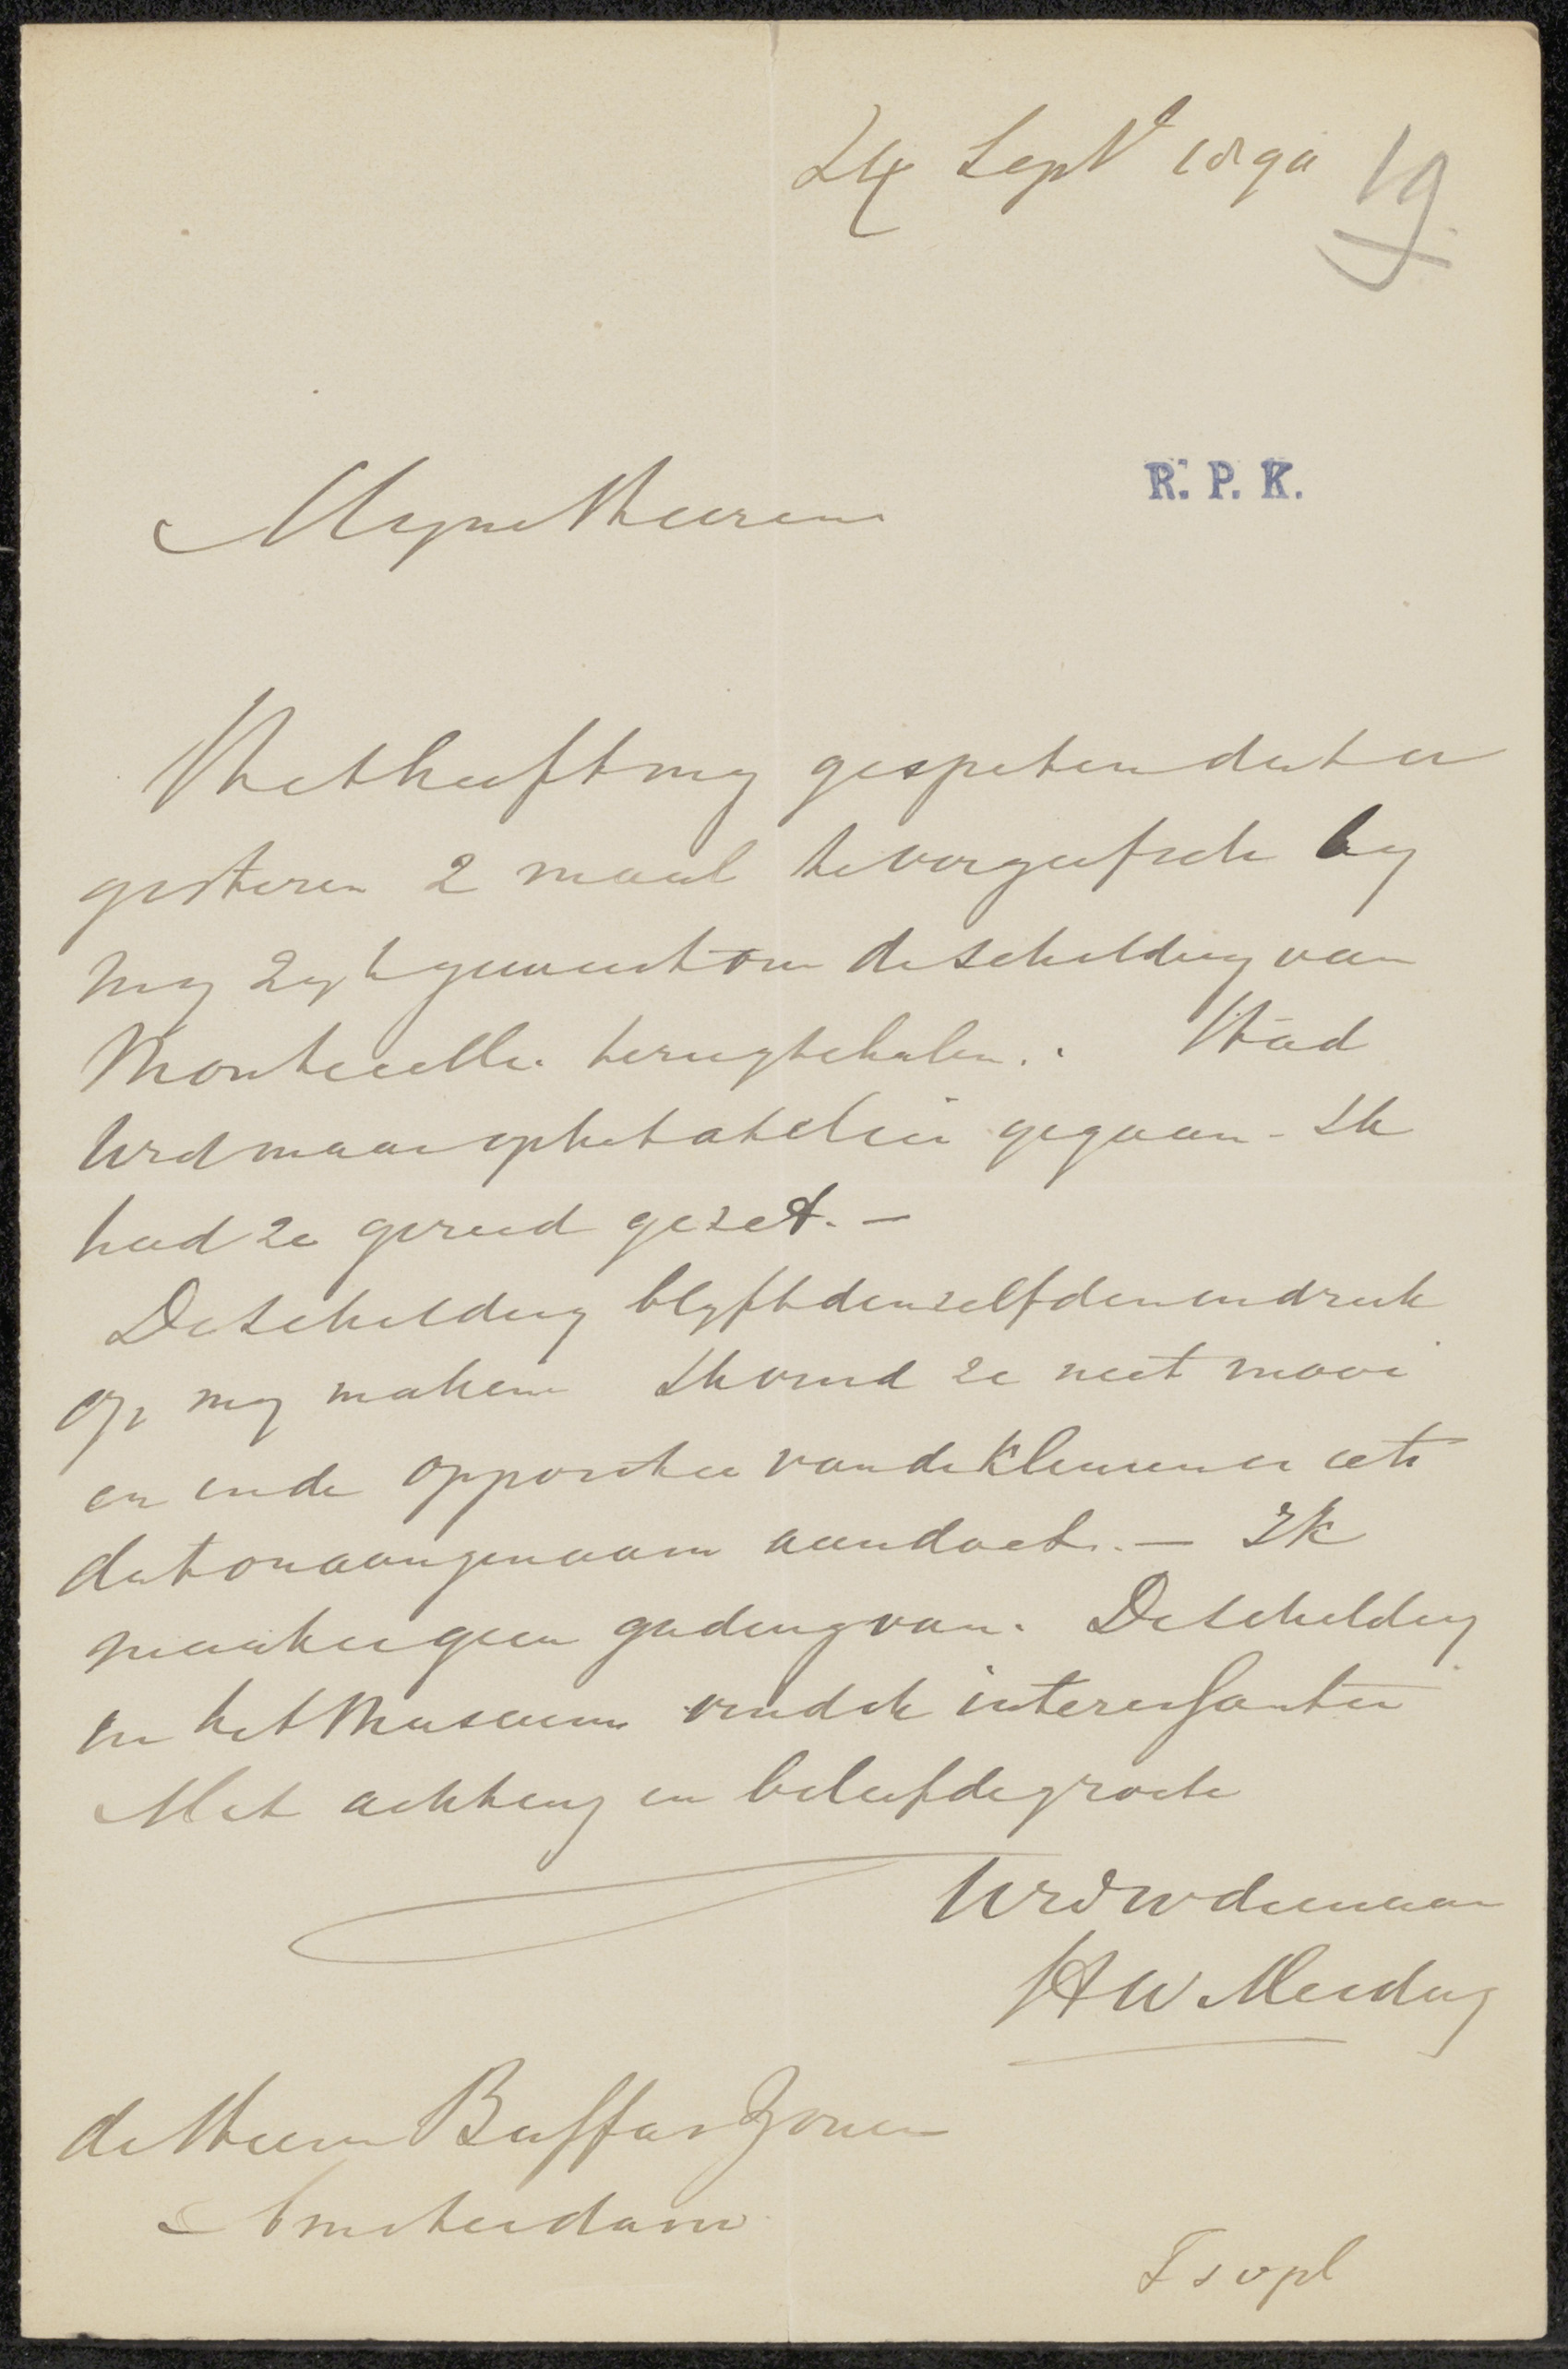 24 Sept 1890
19
R. P. K.
Myne Heeren
Het heeft my gespeten dat u
gisteren 2 maal te vergeefsch by
my zyt geweest om de schildery van
Monticelli terug te halen. Had
Ued maar op het atelier gegaan - Ik
had ze gereed gezet. -
De schildery blyft denzelfden indruk
op my maken Ik vind ze niet mooi
en in de oppositie van de kleuren is iets
dat onaangenaam aandoet. - Ik
maak er geen gading van. De schildery
in het Museum vind ik interessanter
Met achting en beleefde groete
Uwdwdienaar
HW Mesdag
de Heeren Buffa & Zonen
Amsterdam